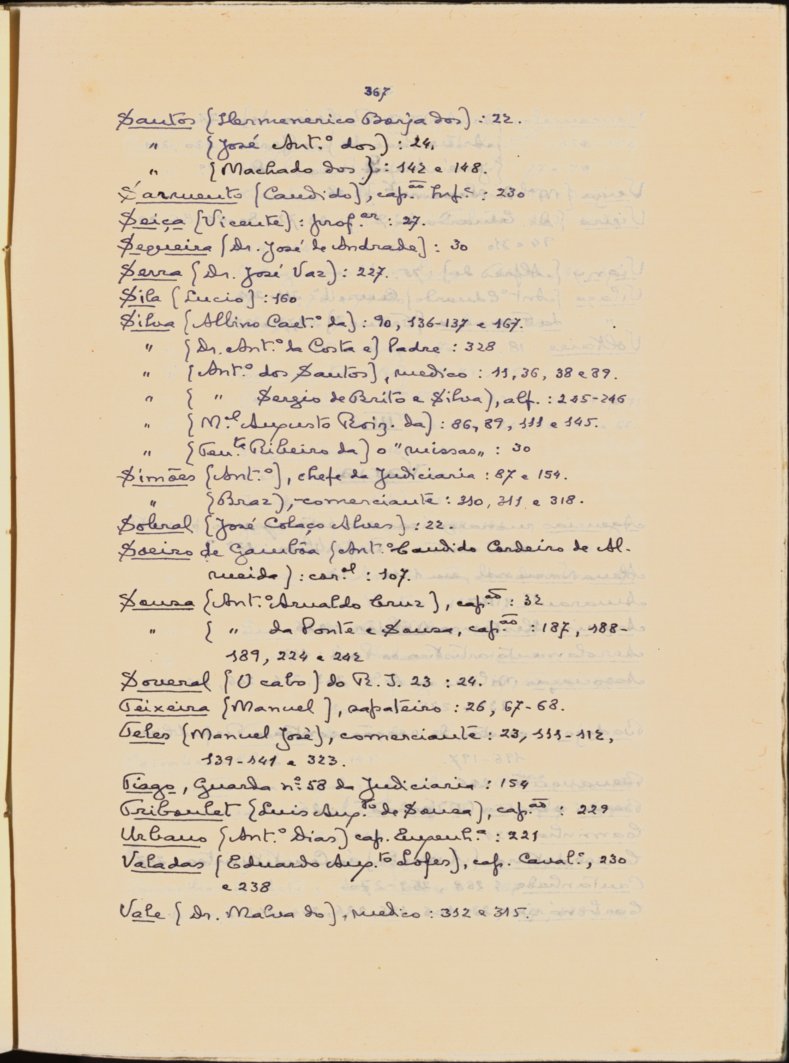 367
Santos (Hermenerico Borja dos) : 22.
" (José Ant.º dos) : 24.
" (Machado dos) : 142 e 148.
Sarmento (Candido), cap.ão Inf.ª : 230
Seiça (Vicente) : prof.or : 27.
Segueira (Dr. José de Andrade) : 30
Serra (Dr. José Vaz) : 227.
Sila (Lucio) : 160
Silva (Albino Caet.º da) : 90, 136-137 e 167.
" (Dr. Ant.º da Costa e) Padre : 328
" (Ant.º dos Santos), medico : 11, 36, 38 e 39.
" ( " Sergio de Brito e Silva), alf. : 245-246
" (M.el Augusto Roiz. da) : 86, 89, 111 e 145.
" (Ten.te Ribeiro da) o "missas" : 30
Simões (Ant.º), chefe da Judiciaria : 87 e 154.
" (Braz), comerciante : 310, 311 e 318.
Sobral (José Colaço Alves) : 22.
Soeiro de Gambôa (Ant.º Candido Cordeiro de Al-
meida) : cor.el : 107.
Sousa (Ant.º Arnaldo Cruz), cap.ão : 32
" ( " da Ponte e Sousa, cap.ão : 187, 188-
189, 224 e 242
Soveral (O cabo) do R. I. 23 : 24.
Teixeira (Manuel), sapateiro : 26, 67-68.
Teles (Manuel José), comerciante : 23, 111-112,
139-141 e 323.
Tiago, Guarda nº 58 da Judiciaria : 154
Triboulet (Luis Aug.to de Sousa), cap.ão : 229
Urbano (Ant.º Dias) cap. Engenh.ª : 221
Valadas (Eduardo Aug.to Lopes), cap. Caval.ª, 230
e 238
Vale (Dr. Malva do), medico : 312 e 315.